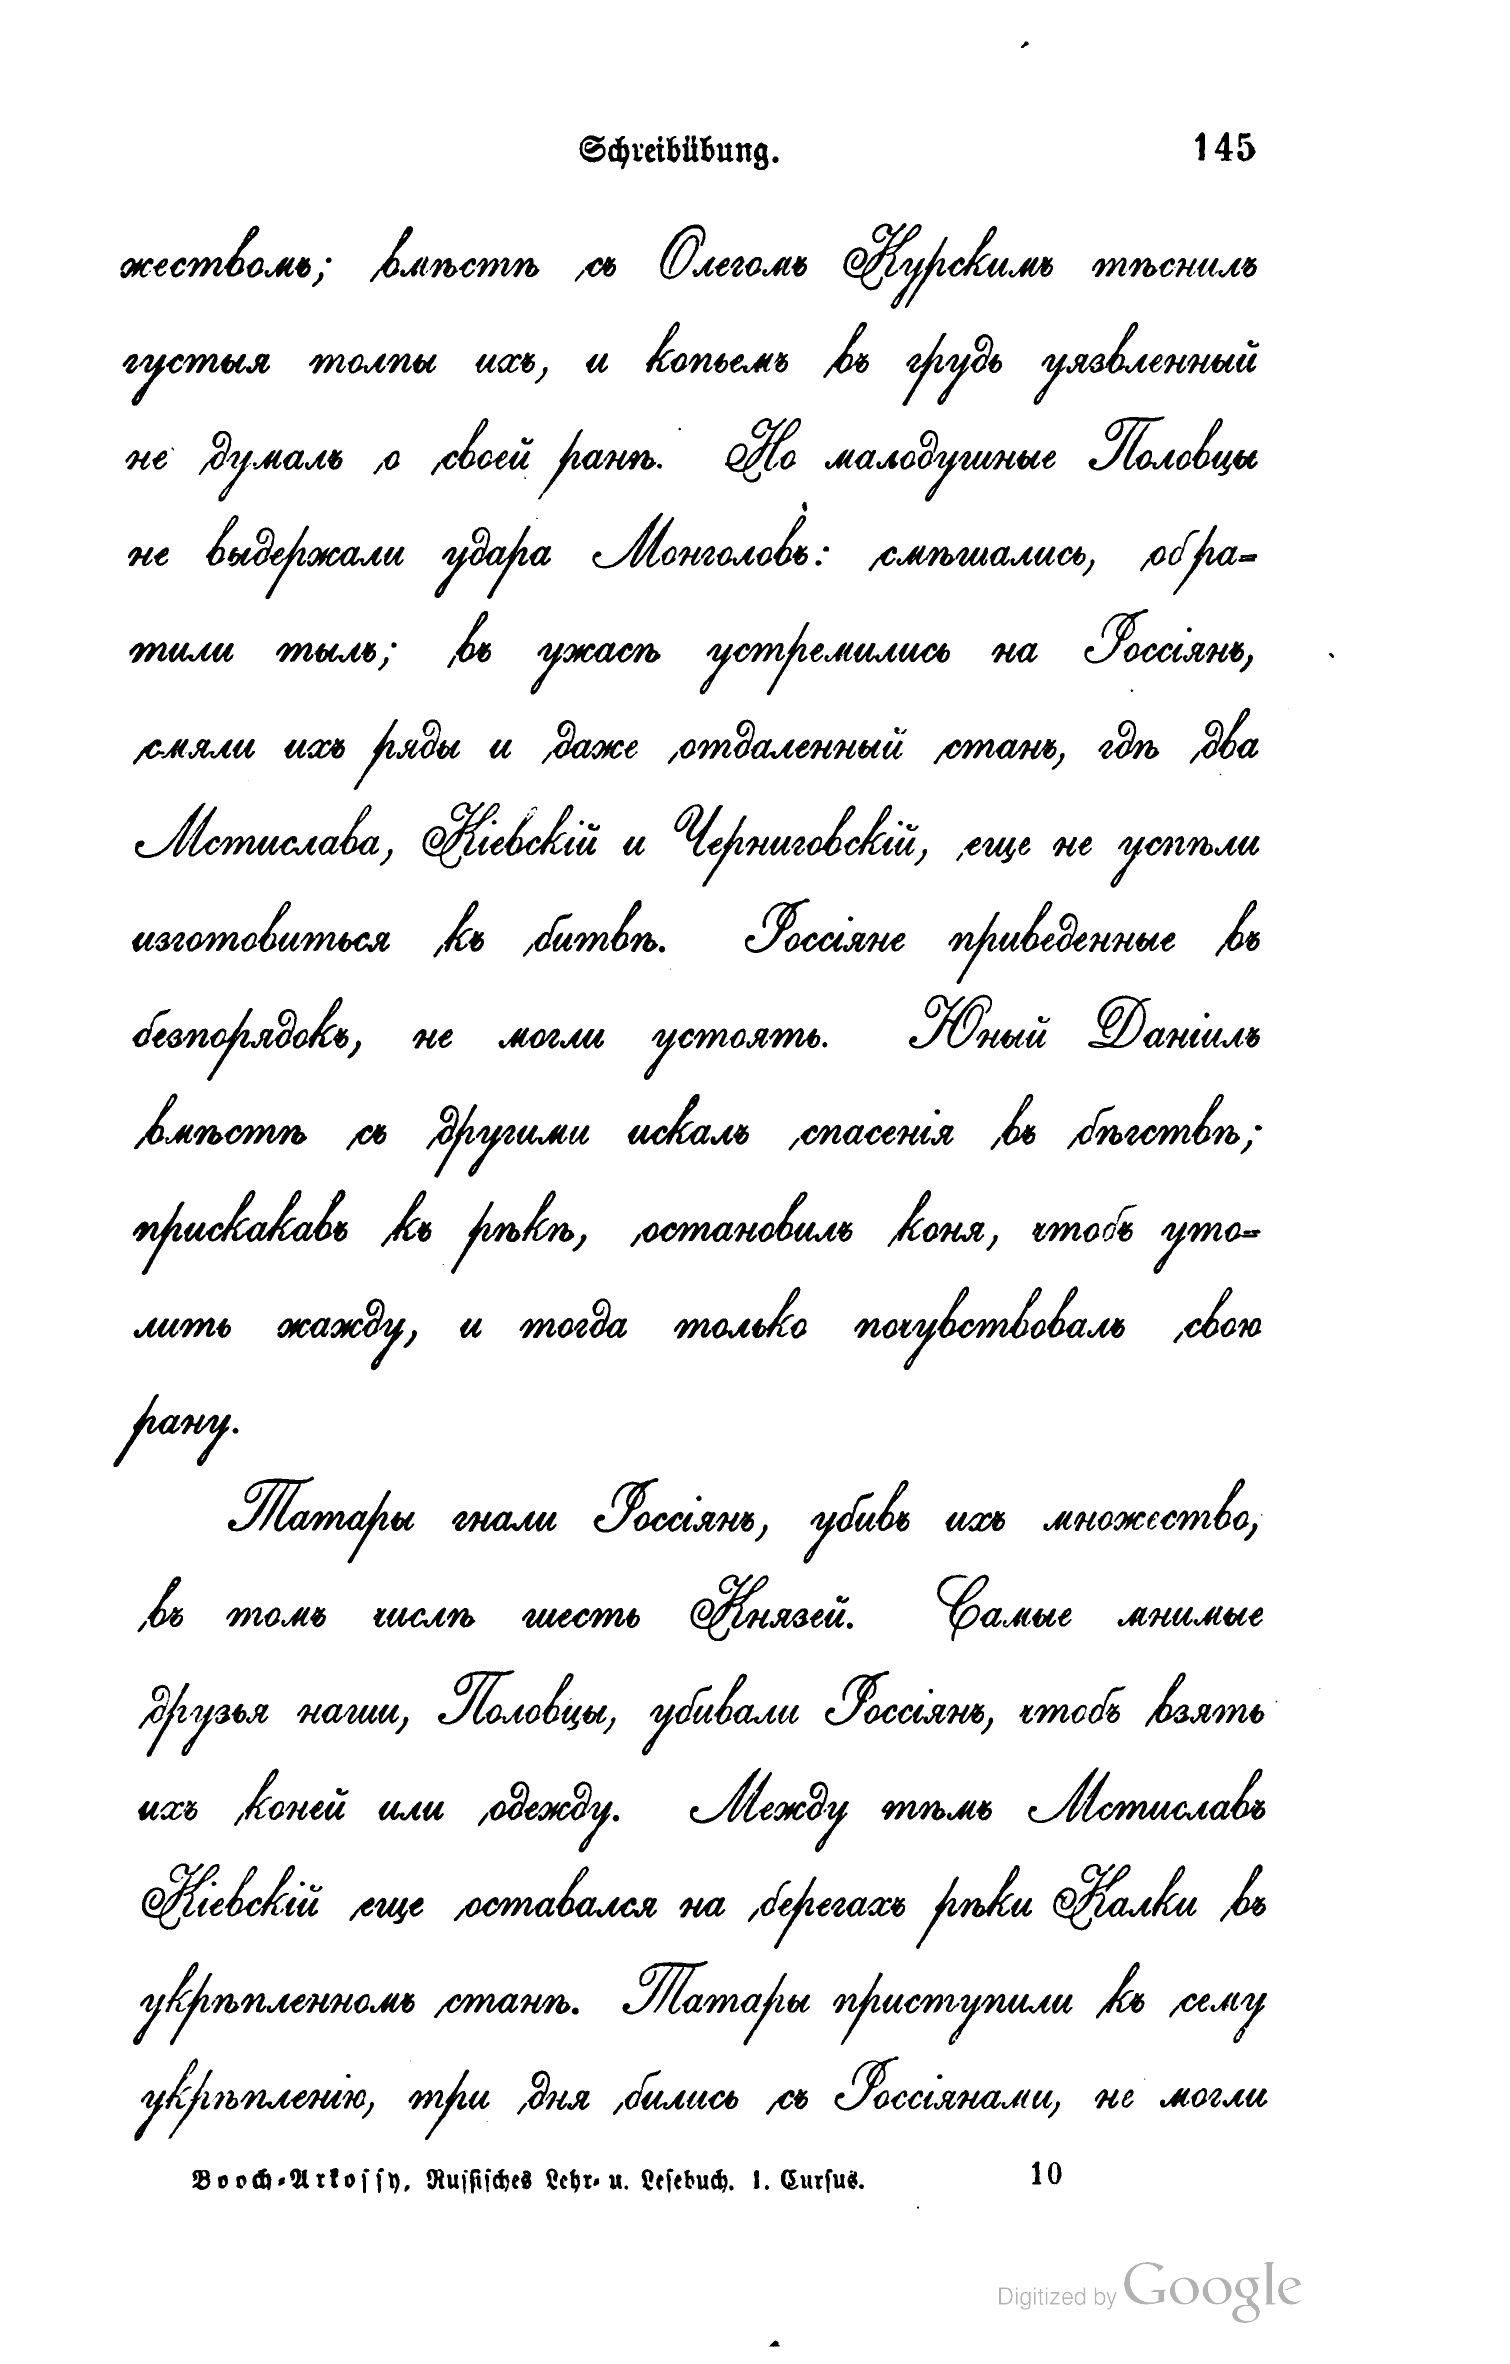 Schreibübung. 145
жествомъ; вмѣстѣ съ Олегомъ Курскимъ тѣснилъ
густыя толпы ихъ, и копьемъ въ грудь уязвленный
не думалъ о своей ранѣ. Но малодушные Половцы
не выдержали удара Монголовъ: смѣшались, обра=
тили тылъ; въ ужасѣ устремились на Россіянъ,
смяли ихъ ряды и даже отдаленный станъ, гдѣ два
Мстислава, Кіевскій и Черниговскій, еще не успѣли
изготовиться къ битвѣ. Россіяне приведенные въ
безпорядокъ, не могли устоять. Юный Даніилъ
вмѣстѣ съ другими искалъ спасенія въ бѣгствѣ;
прискакавъ къ рѣкѣ, остановилъ коня, чтобъ уто=
лить жажду, и тогда только почувствовалъ свою
рану.
Татары гнали Россіянъ, убивъ ихъ множество,
въ томъ числѣ шесть Князей. Самые мнимые
друзья наши, Половцы, убивали Россіянъ, чтобъ взять
ихъ коней или одежду. Между тѣмъ Мстиславъ
Кіевскій еще оставался на берегахъ рѣки Калки въ
укрѣпленномъ станѣ. Татары приступили къ сему
укрѣпленію, три дня бились съ Россіянами, не могли
Booch-Arkossy, Russisches Lehr- u. Lesebuch. I. Cursus. 10
Digitized by Google